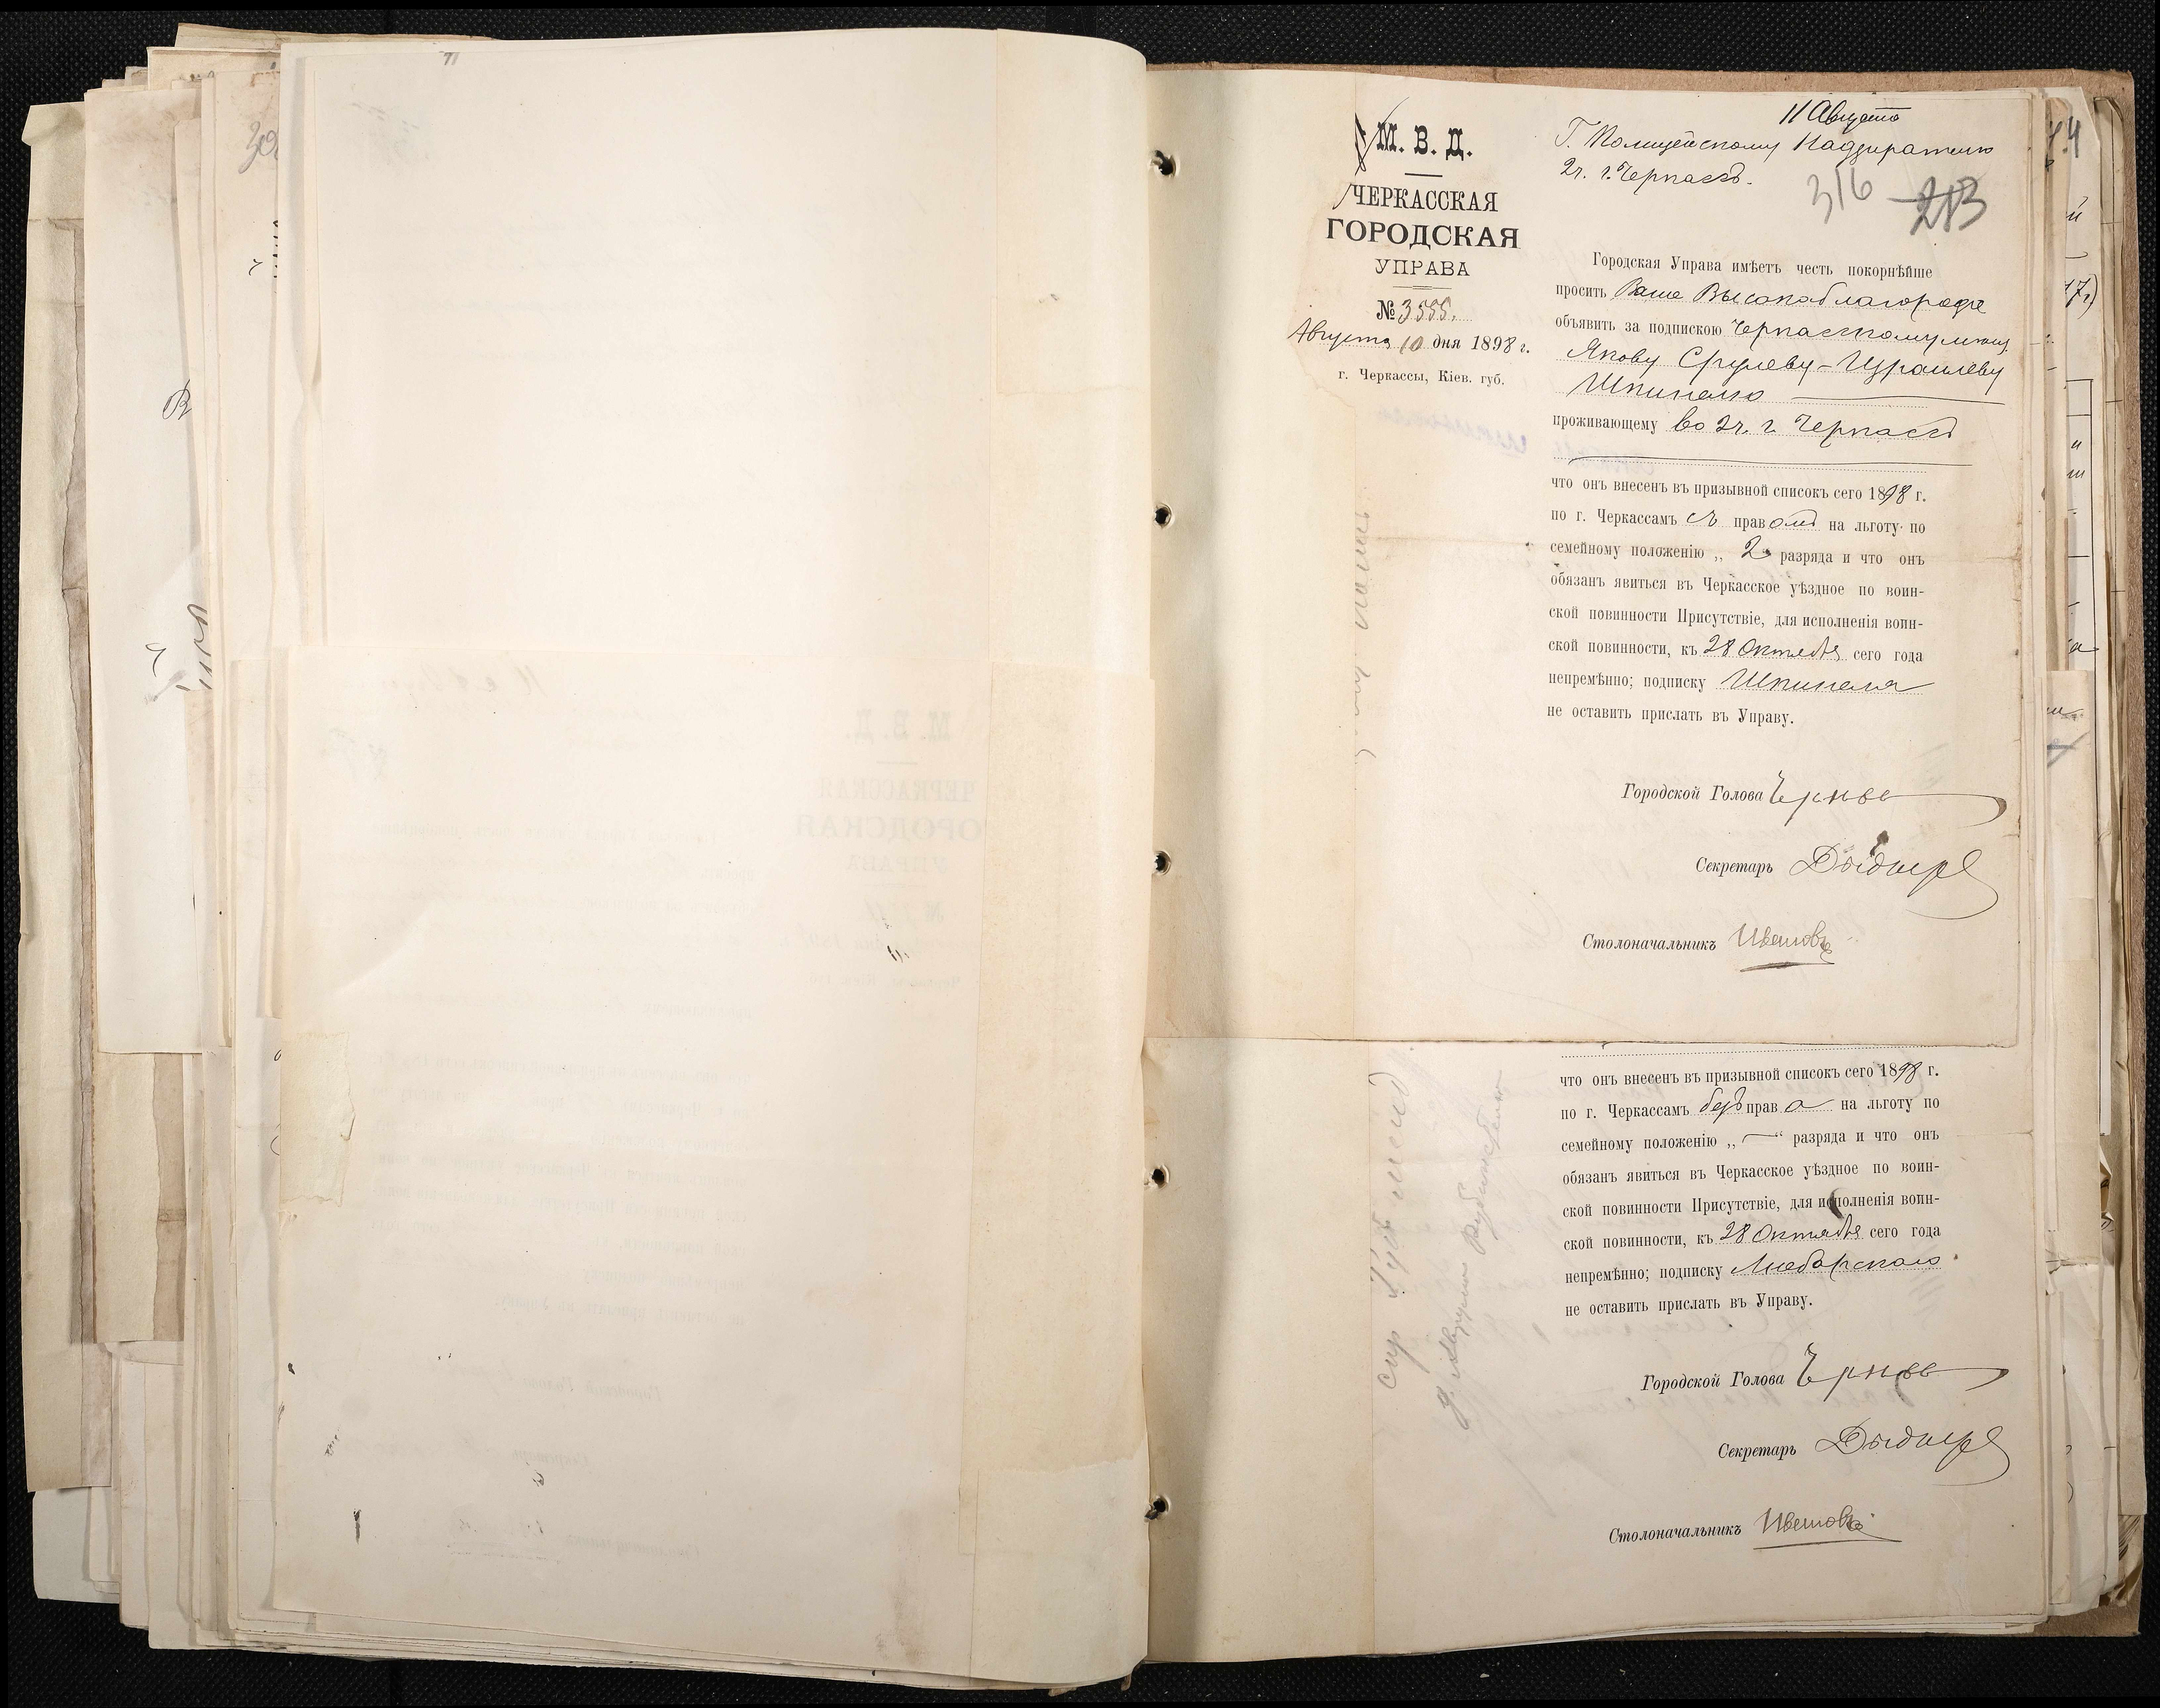 11 Августа
Г. Полицейскому Надзирателю
2ч. г. Черкассъ.
316 213
М. В. Д.
ЧЕРКАССКАЯ
ГОРОДСКАЯ
УПРАВА
№ 3555.
Августа 10 дня 1898 г.
г. Черкассы, Кіев. губ.
Городская Управа имѣетъ честь покорнѣйше
просить Ваше Высокоблагородіе
объявить за подпискою Черкасскому мѣщ.
Якову Срулеву-Израилеву
Шпинелю
проживающему во 2ч. г. Черкассъ
что онъ внесенъ въ призывной списокъ сего 1898 г.
по г. Черкассамъ съ правомъ на льготу по
семейному положенію „ 2 разряда и что онъ
обязанъ явиться въ Черкасское уѣздное по воин-
ской повинности Присутствіе, для исполненія воин-
ской повинности, къ 28 Октября сего года
непремѣнно; подписку Шпинеля
не оставить прислать въ Управу.
Городской Голова
Секретарь
Столоначальникъ
что онъ внесенъ въ призывной списокъ сего 1898 г.
по г. Черкассамъ безъ права на льготу по
семейному положенію „ — “ разряда и что онъ
обязанъ явиться въ Черкасское уѣздное по воин-
ской повинности Присутствіе, для исполненія воин-
ской повинности, къ 28 Октября сего года
непремѣнно; подписку
не оставить прислать въ Управу.
Городской Голова
Секретарь
Столоначальникъ